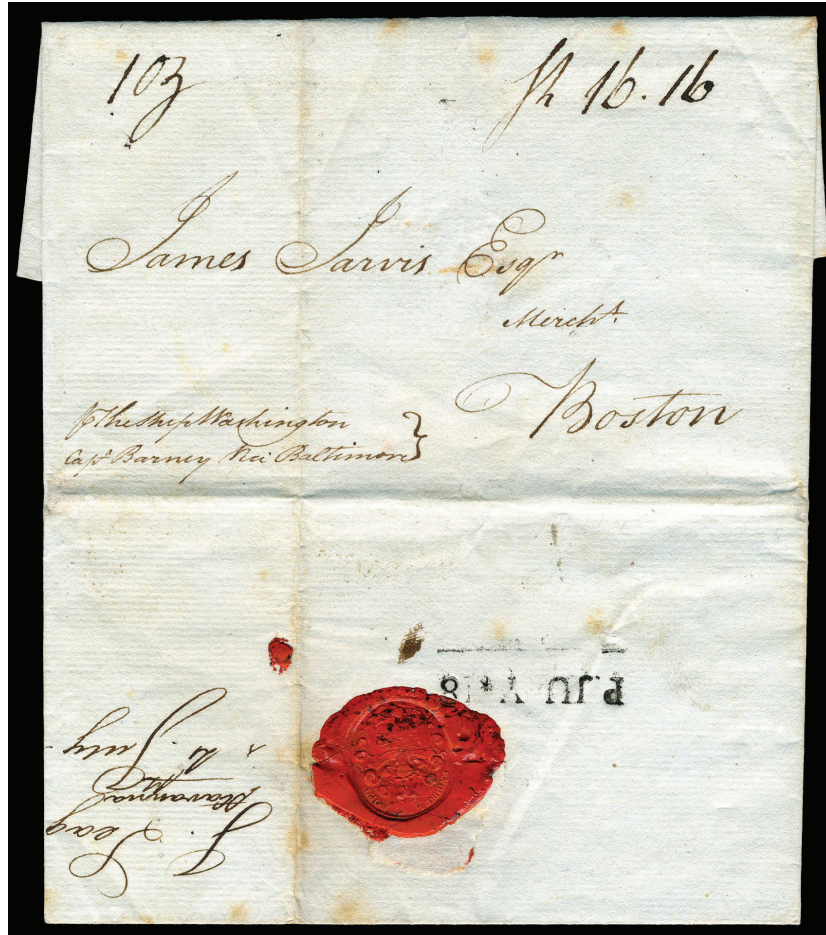 103 Sh 16.16
James Jarvis Esqr
Mercht
Boston
pr the ship Washington
Capt Barney Baltimore
JULY * 18
Havanna
July